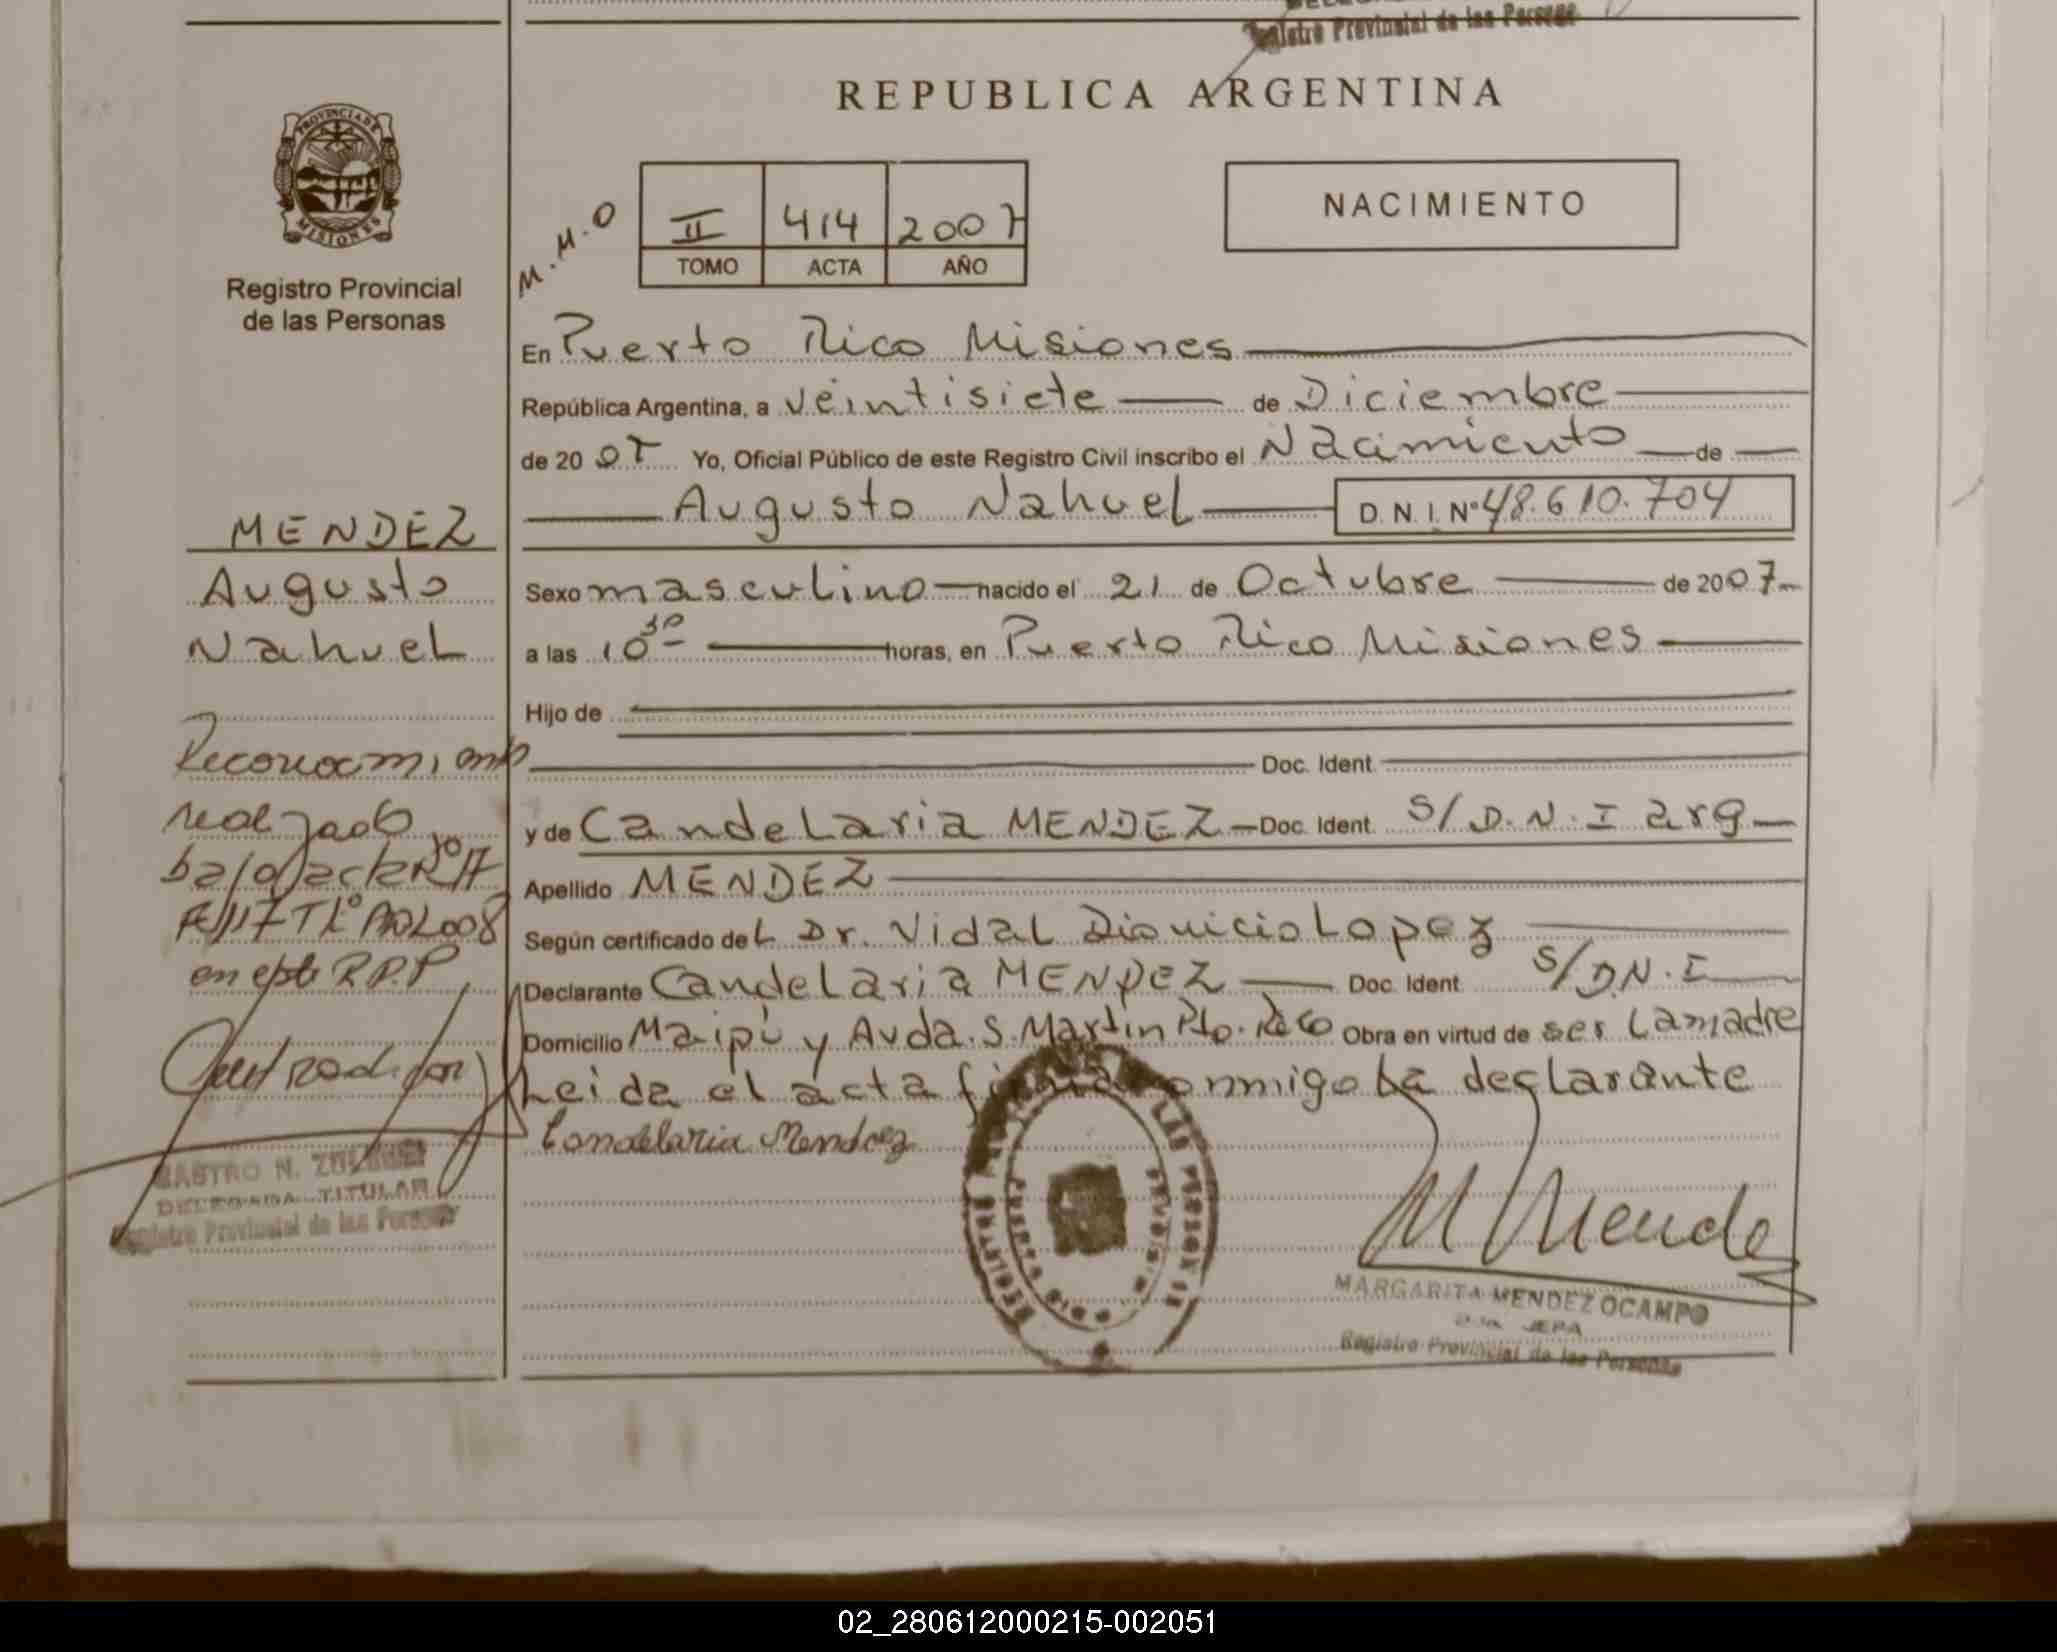 Registro Provincial de las Persona
REPUBLICA ARGENTINA
PROVINCIA DE
MISIONES
Registro Provincial
de las Personas
M.M.O
II 414 2007
TOMO ACTA AÑO
NACIMIENTO
En Puerto Rico Misiones
República Argentina, a veintisiete de Diciembre
de 20 07 Yo, Oficial Público de este Registro Civil inscribo el Nacimiento de
Augusto Nahuel D.N.I. Nº 48.610.704
MENDEZ
Augusto
Nahuel
Sexo masculino nacido el 21 de Octubre de 2007
a las 10 30 horas, en Puerto Rico Misiones
Hijo de
Doc. Ident.
y de Candelaria MENDEZ Doc. Ident. S/ D.N.I arg
Apellido MENDEZ
Según certificado del Dr. Vidal Dionicio Lopez
Declarante Candelaria MENDEZ Doc. Ident. S/D.N.I
Domicilio Maipú y Avda. S. Martin Pto. Rico Obra en virtud de ser la madre
Leida el acta firma conmigo la declarante
Candelaria Mendez
Reconocimiento
realizado
bajo acta Nº 17
en esta R.P.P
DELEGADA TITULAR
Registro Provincial de las Personas
M Mendez
MARGARITA MENDEZ OCAMPO
JEFA
Registro Provincial de las Personas
02_280612000215-002051